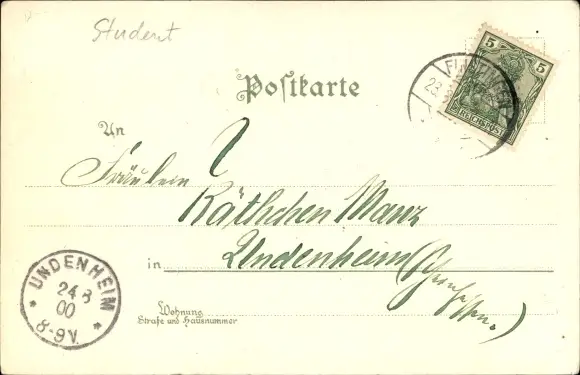 Student
5 5
REICHSPOST
23.
Postkarte
An
Fräulein
Käthchen Manz
in Undenheim (Rheinhessen.)
Wohnung
Straße und Hausnummer
UNDENHEIM
24 8
00
8-9V.